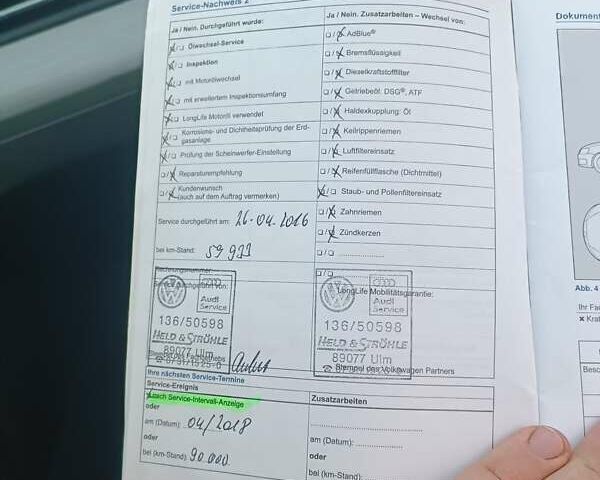 Service-Nachweis 2
Ja / Nein. Durchgeführt wurde:
Ölwechsel-Service
Inspektion
mit Motorölwechsel
mit erweitertem Inspektionsumfang
LongLife Motoröl verwendet
Korrosions- und Dichtheitsprüfung der Erd-
gasanlage
Prüfung der Scheinwerfer-Einstellung
Reparaturempfehlung
Kundenwunsch
(auch auf dem Auftrag vermerken)
Service durchgeführt am: 26.04.2016
bei km-Stand: 59 933
Ja / Nein. Zusatzarbeiten – Wechsel von:
AdBlue®
Bremsflüssigkeit
Dieselkraftstofffilter
Getriebeöl: DSG®, ATF
Haldexkupplung: Öl
Keilrippenriemen
Luftfiltereinsatz
Reifenfüllflasche (Dichtmittel)
Staub- und Pollenfiltereinsatz
Zahnriemen
Zündkerzen
Audi
Service
136/50598
HELD & STRÖHLE
89077 Ulm
LongLife Mobilitätsgarantie:
Audi
Service
136/50598
HELD & STRÖHLE
89077 Ulm
Stempel des Volkswagen Partners
Ihre nächsten Service-Termine
Service-Ereignis
nach Service-Intervall-Anzeige
oder
am (Datum): 04/2018
oder
bei (km-Stand): 90.000
Zusatzarbeiten:
am (Datum):
oder
bei (km-Stand):
Dokument
Abb. 4
Ihr Fa